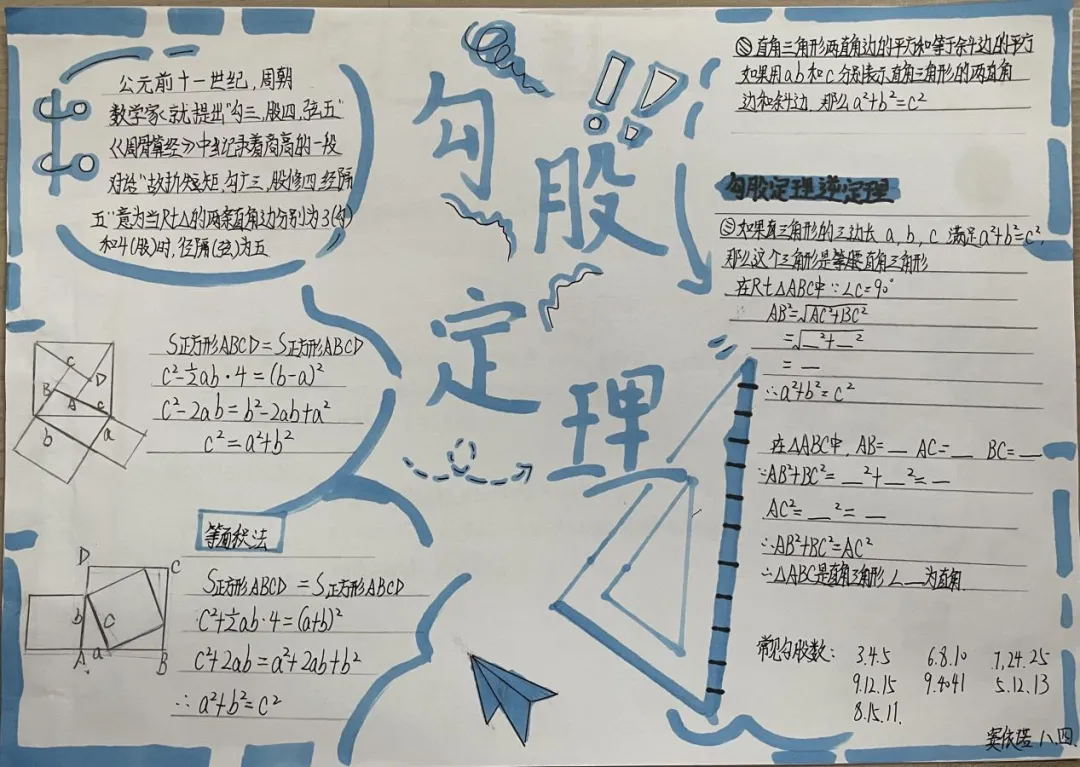 公元前十一世纪,周朝
数学家就提出"勾三,股四,弦五"
《周髀算经》中记录着商高的一段
对给"故折矩,勾广三,股修四,经隅
五"意为当Rt△的两条直角边分别为3(勾)
和4(股)时,径隅(弦)为五
S正方形ABCD=S正方形ABCD
c²-½ab·4=(b-a)²
c²-2ab=b²-2ab+a²
c²=a²+b²
c
D
B
A
c
b
a
等面积法
S正方形ABCD=S正方形ABCD
c²+½ab·4=(a+b)²
c²+2ab=a²+2ab+b²
∴a²+b²=c²
D
C
b
C
A
a
B
勾股!!
定理
① 直角三角形两直角边的平方和等于斜边的平方
如果用ab和c分别表示直角三角形的两直角
边和斜边,那么a²+b²=c²
勾股定理逆定理
②如果直三角形的三边长a,b,c满足a²+b²=c²,
那么这个三角形是等腰直角三角形
在Rt△ABC中∵∠C=90°
AB²=√AC²+BC²
=√__²+__²
=__
∴a²+b²=c²
在△ABC中,AB=__ AC=__ BC=__
∵AB²+BC²=__²+__²=__
AC²=__²=__
∴AB²+BC²=AC²
∴△ABC是直角三角形∠__为直角
常见勾股数: 3.4.5 6.8.10 7.24.25
9.12.15 9.4041 5.12.13
8.15.11.
八.四.